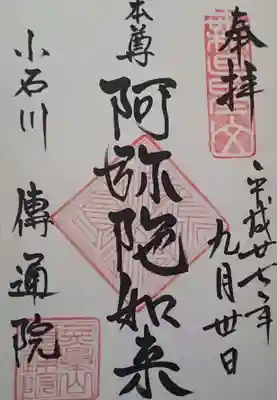 奉拝
平成廿七年
九月卅日
本尊
阿弥陀如来
小石川
傳通院